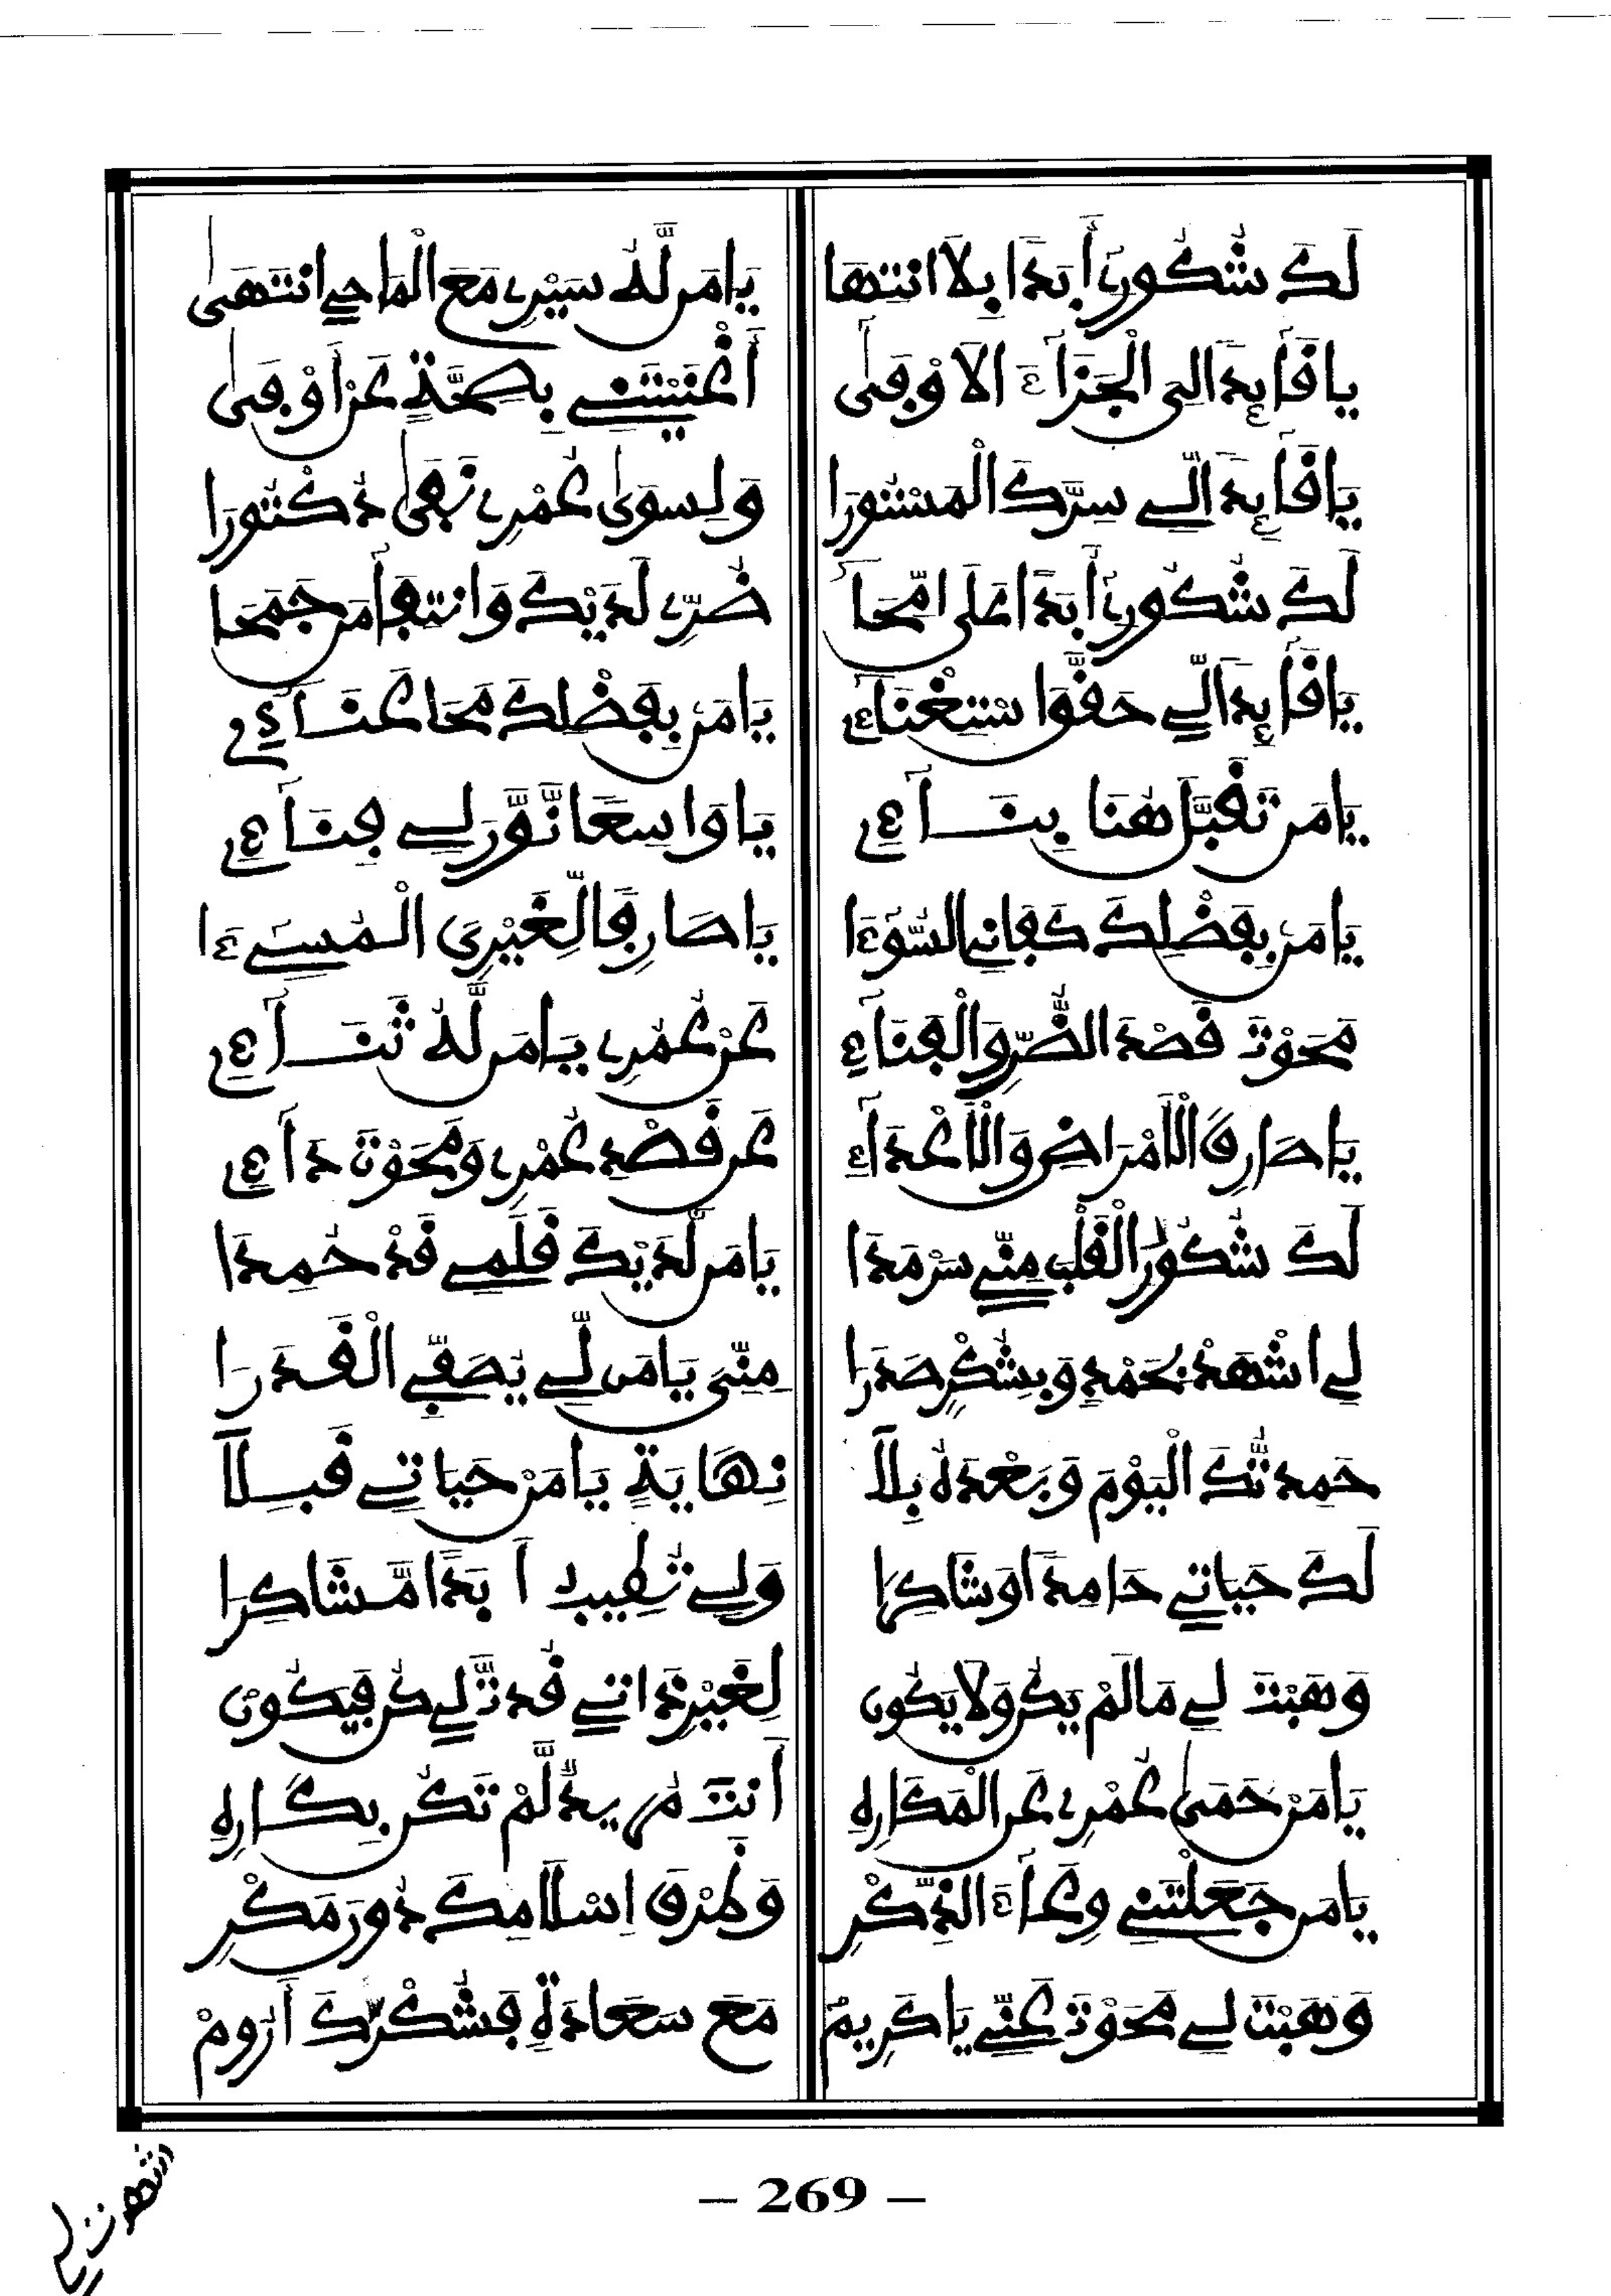 لَكَ شُكُورِي أَبَدًا بِلَا انتِهَا يَا مَن لَّهُ سَيْرِي مَعَ الْمَاحِي انتَهَى
يَا قَآئِدًا إِلَى الْجَزَآءِ الَاوْفَى أَغْنَيْتَنِي بِصِحَّةٍ عَنْ أَوْفَى
يَا قَآئِدًا إِلَيَّ سِرَّكَ الْمَسْتُورَا وَلِسِوَى عُمْرِي نَفَى دُكْتُورَا
لَكَ شُكُورِي أَبَدًا عَلَى امِّحَا ضُرِّي لَدَيْكَ وَانتَفِي أَمَن جَمَحَا
يَا قَآئِدًا لِّي حَقُّوا سْتِغْنَآءِ يَا مَنْ بِفَضْلِكَ مَحَا عَنَآءِي
يَا مَن تَقَبَّلَ هُنَا بِنَآءِي يَا وَاسِعًا نَّوَّرَ لِي فِنَآءِي
يَا مَنْ بِفَضْلِكَ كَفَانِي السُّوٓءَا يَا صَارِفًا لِّغَيْرِيَ الْمُسِيٓءَا
مَحَوْتَ قَصْدَ الضُّرِّ وَالْفِنَآءِ عَنْ عُمُرِي يَا مَن لَّهُ ثَنَآءِي
يَا صَارِفَ الْأَمْرَاضِ وَالْأَعْدَآءِ عَن قَصْدِ عُمْرِي وَمَحَوْتَ دَآءِي
لَكَ شُكُورُ الْقَلْبِ مِنِّي سَرْمَدَا يَا مَن لَّدَيْكَ قَلَمِي قَدْ حُمِدَا
لِي اشْهَدْ بِحَمْدٍ وَبِشُكْرٍ صَدَرَا مِنِّيَ يَا مَن لِّي يُصَفِّي الْقَدَرَا
حَمِدتُّكَ الْيَوْمَ وَبَعْدَهُ بِلَا نِهَايَةٍ يَا مَنْ حَيَاتِي قَبِلَا
لَكَ حَيَاتِي حَامِدًا وَشَاكِرَا وَلِي تَطِيبُ أَبَدًا مَّشَاكِرَا
وَهَبْتَ لِي مَا لَمْ يَكُن وَلَا يَكُون لِغَيْرِ ذَاتِي قُدتَّ لِي كُن فَيَكُونْ
يَا مَنْ حَمَى عُمْرِي عَنِ الْمَكَارِهِ أَنتَ مُرِيدٌ لَّمْ تَكُن بِكَارِهِ
يَا مَن جَعَلْتَنِي وِعَآءَ الذِّكْرِ وَطُرْقَ اِسْلَامِكَ دُونَ مَكْرِ
وَهَبْتَ لِي مَحَوْتَ عَنِّي يَا كَرِيمُ مَعَ سَعَادَةٍ فَشُكْرَكَ أَرُومْ
– 269 –